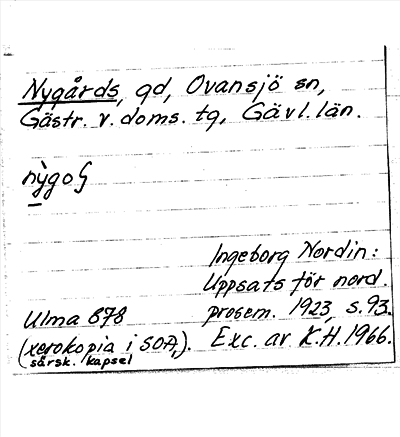 Nygårds, gd, Ovansjö sn,
Gästr. v. doms. tg, Gävl. län.
Ingeborg Nordin:
Uppsats för nord.
prosem. 1923, s. 93.
Exc. av K.H. 1966.
Ulma 878
(xerokopia i SOA,).
särsk. kapsel